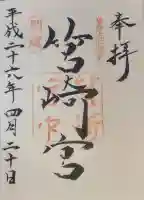 奉拝
筥崎宮
平成二十六年四月二十日